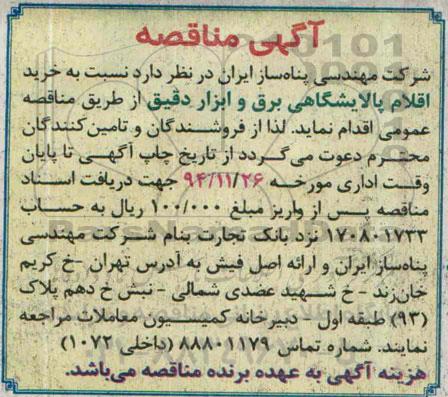 آگهی مناقصه
شرکت مهندسی پناه‌ساز ایران در نظر دارد نسبت به خرید
اقلام پالایشگاهی برق و ابزار دقیق از طریق مناقصه
عمومی اقدام نماید. لذا از فروشندگان و تامین‌کنندگان
محترم دعوت می‌گردد از تاریخ چاپ آگهی تا پایان
وقت اداری مورخه ۹۴/۱۱/۲۶ جهت دریافت اسناد
مناقصه پس از واریز مبلغ ۱۰۰/۰۰۰ ریال به حساب
۱۷۰۸۰۱۷۳۳ نزد بانک تجارت بنام شرکت مهندسی
پناه‌ساز ایران و ارائه اصل فیش به آدرس تهران -خ کریم
خان‌زند - خ شهید عضدی شمالی - نبش خ دهم پلاک
(۹۳) طبقه اول - دبیرخانه کمیسیون معاملات مراجعه
نمایند. شماره تماس ۸۸۸۰۱۱۷۹ (داخلی ۱۰۷۲)
هزینه آگهی به عهده برنده مناقصه می‌باشد.